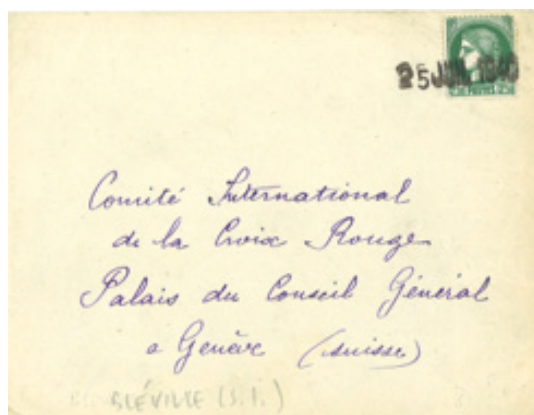 25 JUIL 1940
POSTES
Comité International
de la Croix Rouge
Palais du Conseil Général
a Genève (Suisse)
BLÉVILLE (S.I.)